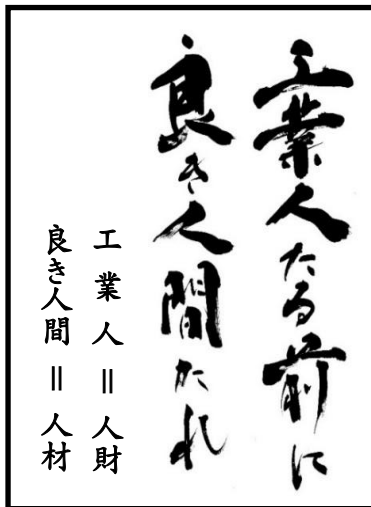 工業人たる前に
良き人間たれ
工業人＝人財
良き人間＝人材